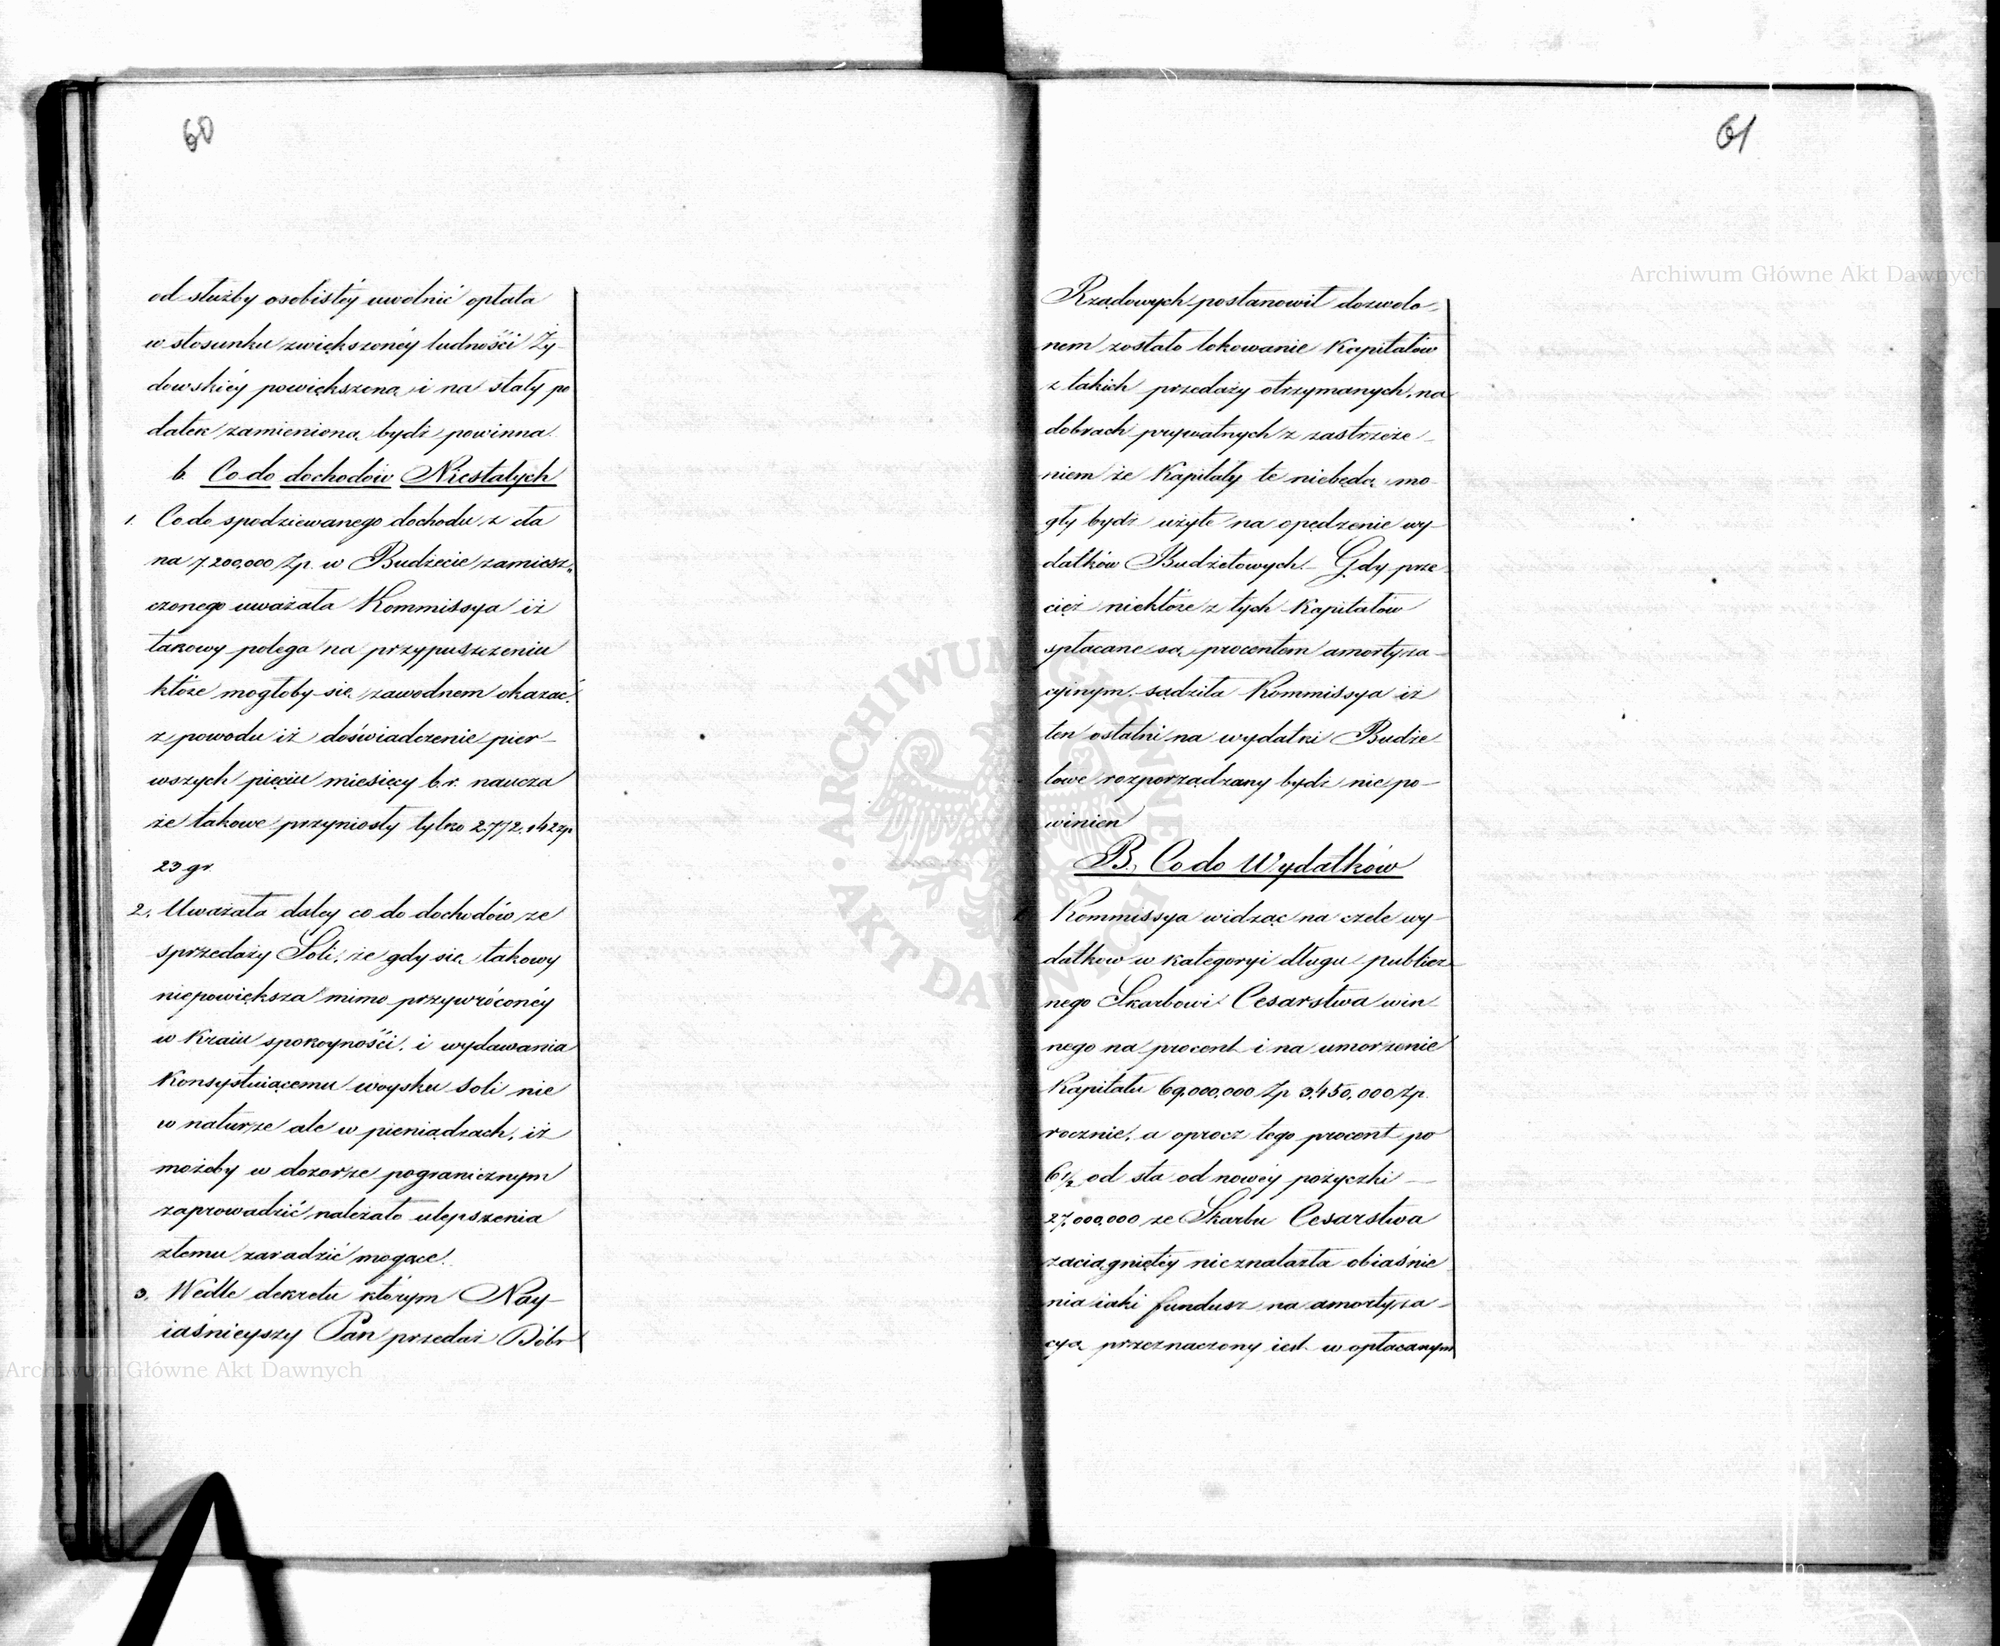 60
od służby osobistéy uwolnić opłata
w stosunku zwiększonéy ludności Ży-
dowskiéy powiększona i na stały po
datek zamieniona bydź powinna.
b. Co do dochodów Niestałych
1. Co do spodziewanego dochodu z cła
na 7.200,000 Zp. w Budżecie zamiesz„
czonego uważała Kommissya iż
takowy polega na przypuszczeniu
które mogłoby się zawodnem okazać,
z powodu iż doświadczenie pier-
wszych pięciu miesięcy b.r. naucza
że takowe przyniosły tylko 2.772.142 zp
23 gr.
2. Uważała daley co do dochodów ze
sprzedaży Soli, że gdy się takowy
niepowiększa mimo przywróconéy
w Kraiu spokoyności, i wydawania
Konsystuiącemu woysku soli nie
w naturze ale w pieniądzach, iż
możeby w dozorze pogranicznym
zaprowadzić należało ulepszenia
złemu zaradzić mogące.
3. Wedle dekretu którym Nay-
iaśnieyszy Pan przedaż Dóbr
61
Rządowych postanowił dozwolo-
nem zostało lokowanie Kapitałów
z takich przedaży otrzymanych, na
dobrach prywatnych z zastrzeże-
niem że Kapitały te niebędą mo-
gły bydź użyte na opędzenie wy-
datków Budżetowych. Gdy prze-
cież niektóre z tych Kapitałów
spłacane są procentem amortyza-
cyinym, sądziła Kommissya iż
ten ostatni na wydatki Budże-
towe rozporządzany bydź nie po-
winien
B. Co do Wydatków
Kommissya widząc na czele wy-
datkow w kategoryi długu publicz-
nego Skarbowi Cesarstwa win
nego na procent i na umorzenie
Kapitału 69,000,000 Zp 3,450,000 Zp.
rocznie, a oprocz tego procent po
6 1/2 od sta od nowéy pożyczki —
27,000,000 ze Skarbu Cesarstwa
zaciągniętéy nieznalazła obiaśnie
nia iaki fundusz na amortyza-
cyą przeznaczony iest w opłacanym
Archiwum Główne Akt Dawnych
Archiwum Główne Akt Dawnych
ARCHIWUM GŁÓWNE AKT DAWNYCH